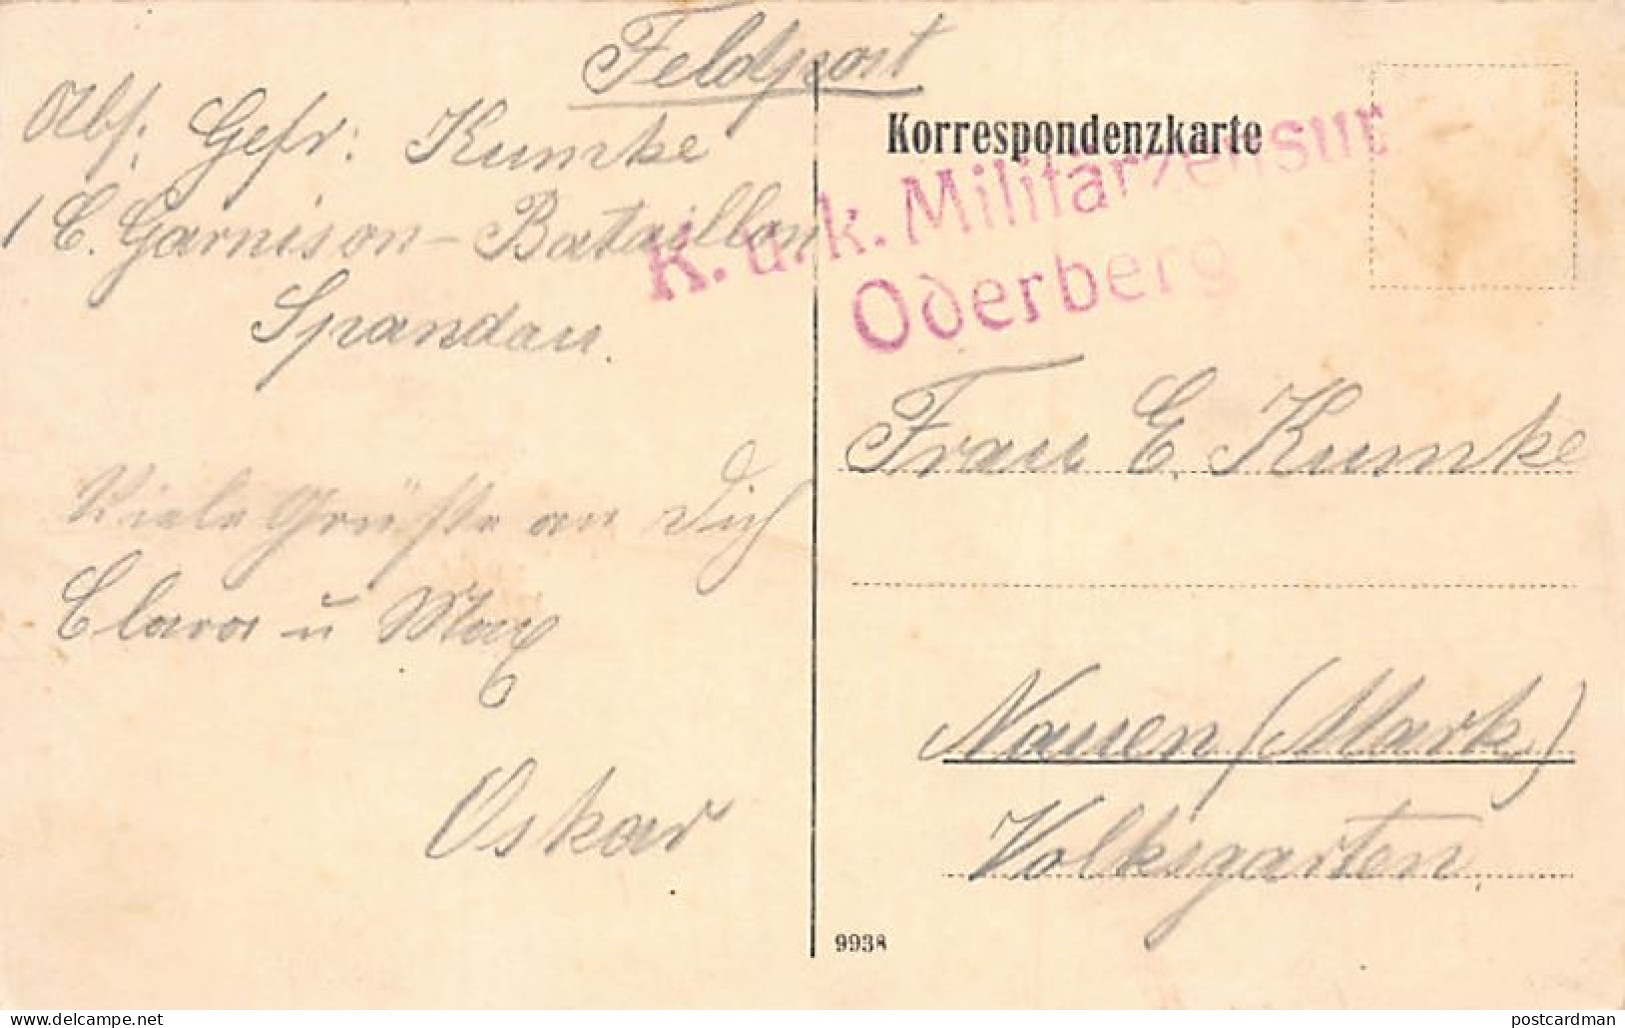 Feldpost
Abs: Gefr: Kumke
1 E. Garnison-Bataillon
Spandau.
Viele Grüße an Dich
Clara u Max
Oskar
Korrespondenzkarte
K. u. k. Militärzensur
Oderberg
Frau E. Kumke
Nauen (Mark)
Volksgarten
9938
www.delcampe.net
postcardman